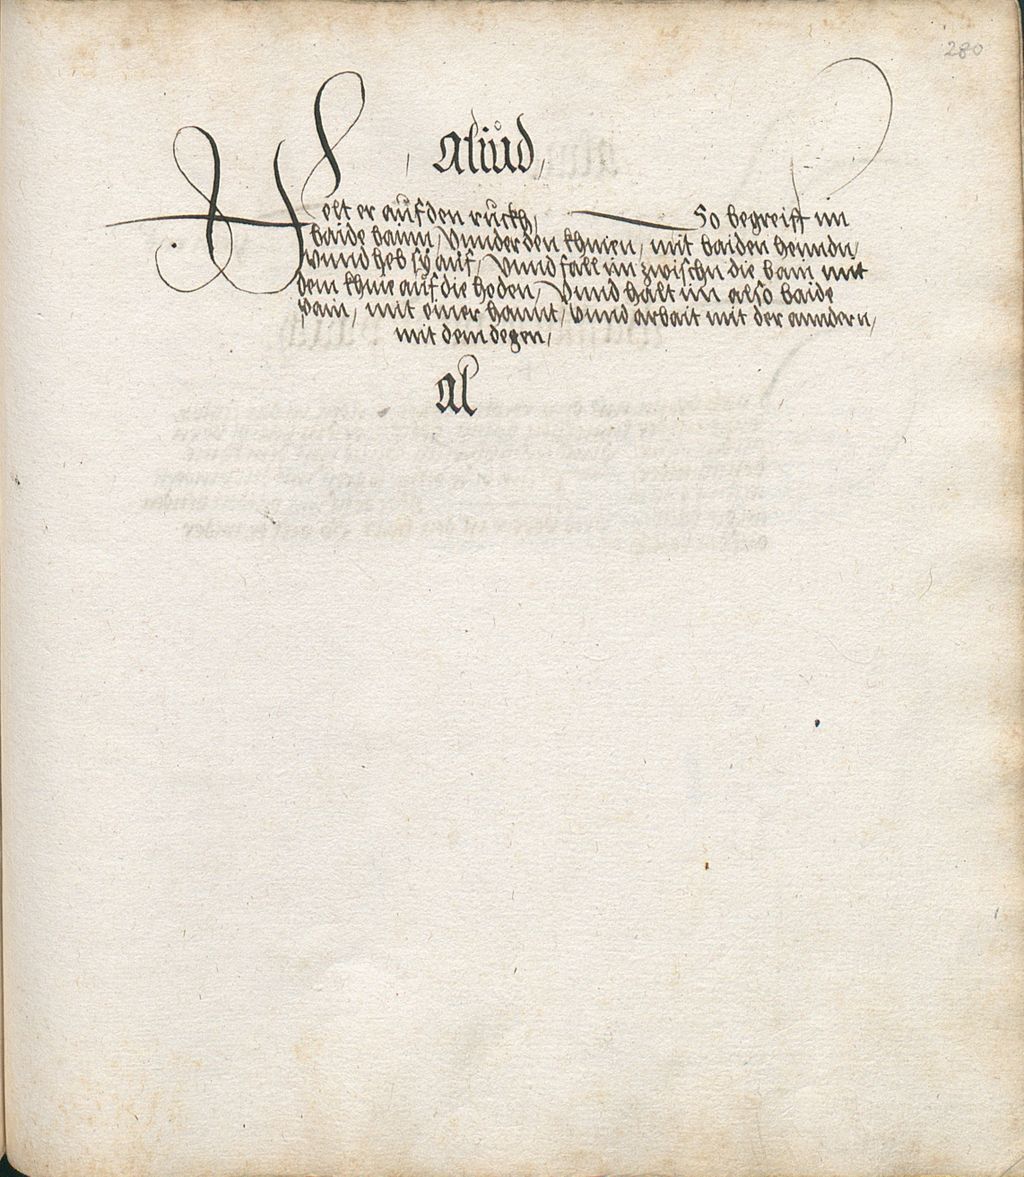 280
Aliud,
Velt er auf den ruckh, So begreiff im
baide bainn, vnnder den khnien, mit baiden henndn,
vnnd heb sy auf, vnnd fall im zwischn die bain mit
dem khnie auf die hoden, Vnnd halt im also baide
pain, mit einer hannt, vnnd arbait mit der anndern,
mit dem degen,
Al